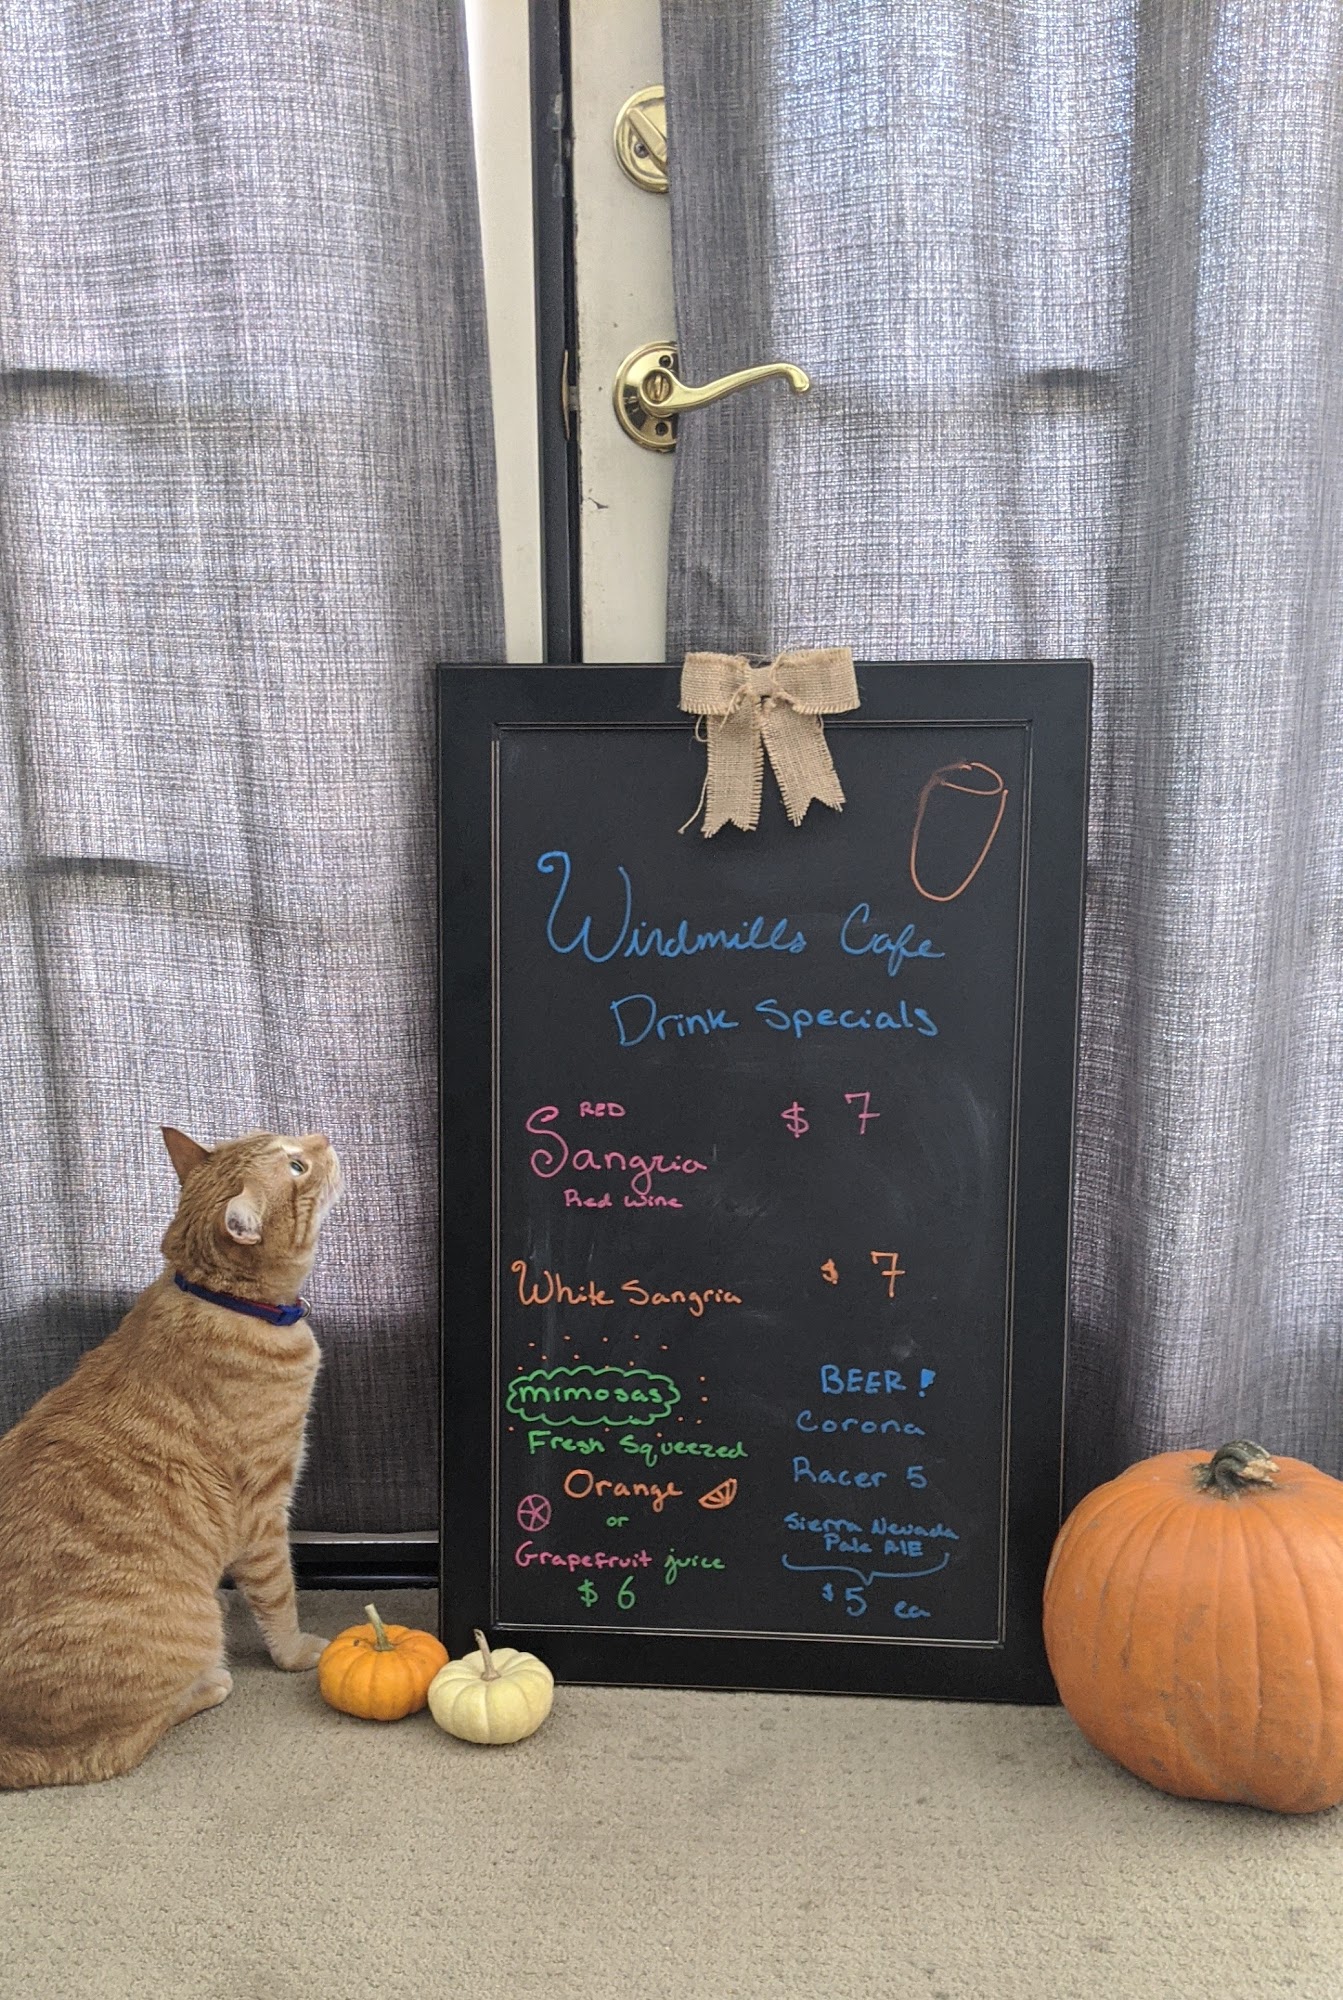 Windmills Cafe
Drink Specials
RED
Sangria $ 7
Red Wine
White Sangria $ 7
mimosas
Fresh Squeezed
Orange
or
Grapefruit juice
$ 6
BEER!
Corona
Racer 5
Sierra Nevada
Pale AlE
$5 ea